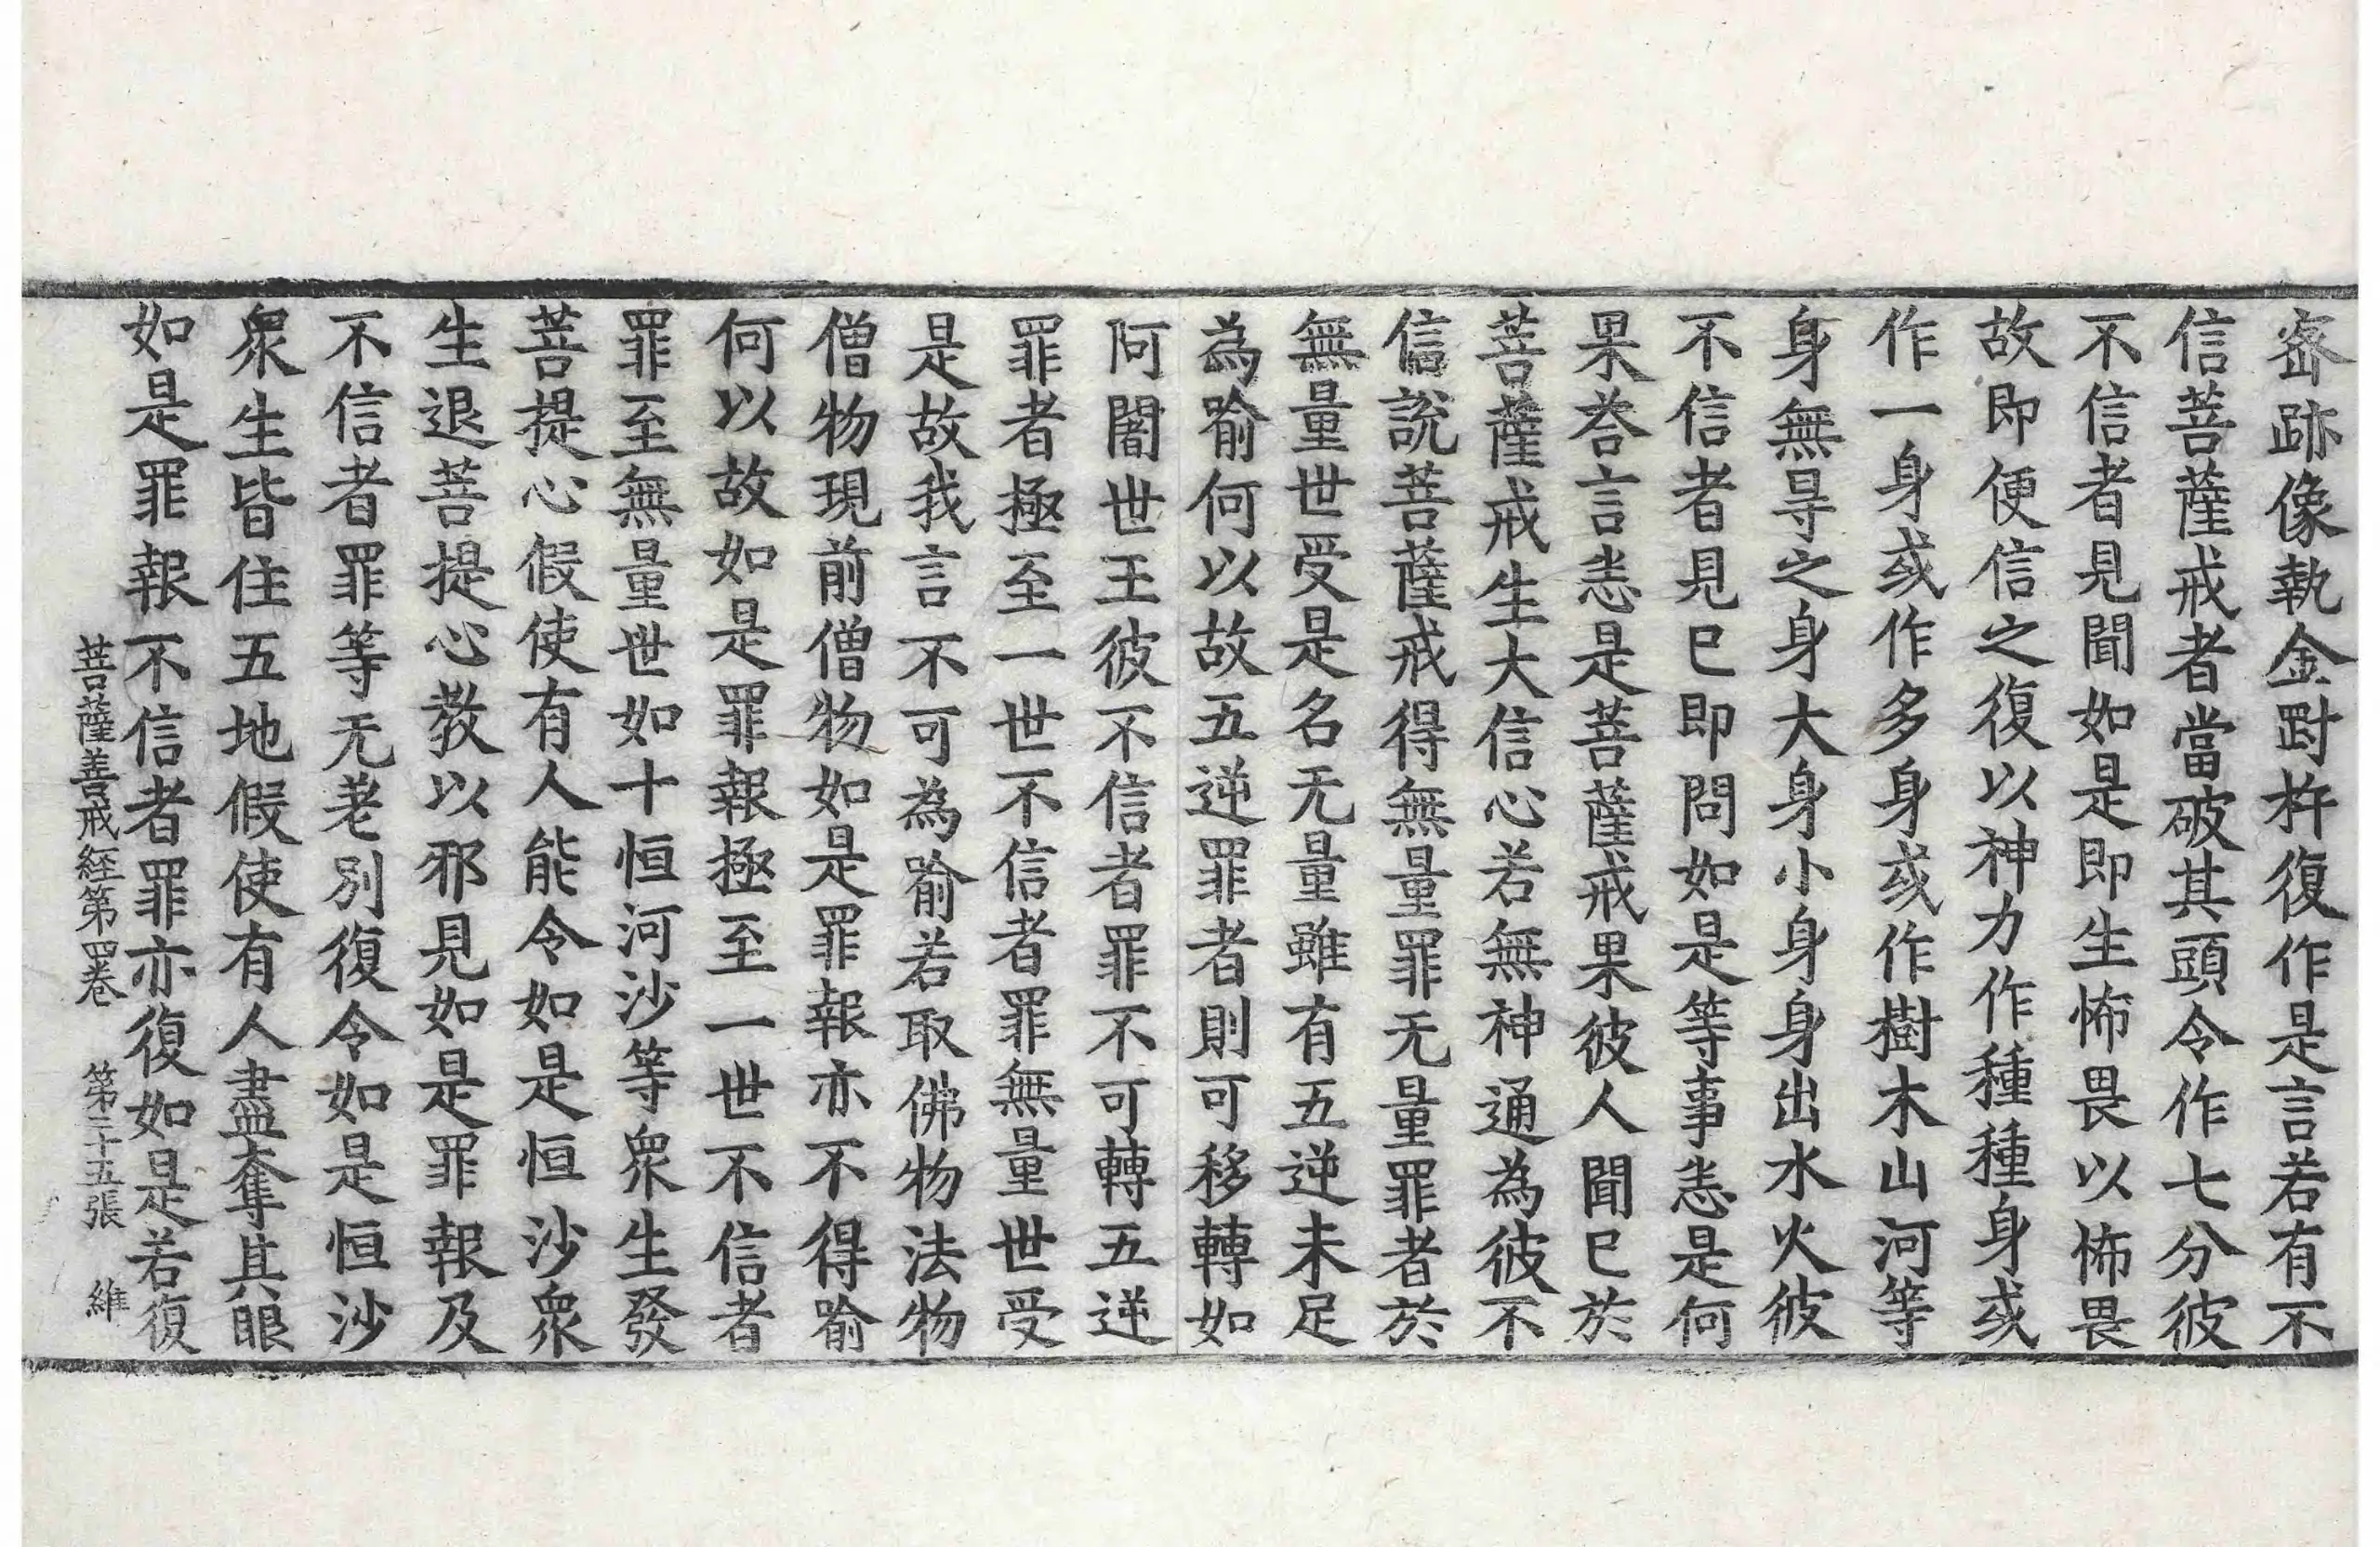 宻跡像執金剛杵復作是言若有不
信菩薩戒者當破其頭令作七分彼
不信者見聞如是即生怖畏以怖畏
故即便信之復以神力作種種身或
作一身或作多身或作樹木山河等
身無㝵之身大身小身身出水火彼
不信者見已即問如是等事悉是何
果荅言悉是菩薩戒果彼人聞已於
菩薩戒生大信心若無神通為彼不
信說菩薩戒得無量罪无量罪者於
無量世受是名无量雖有五逆未足
為喻何以故五逆罪者則可移轉如
阿闍世王彼不信者罪不可轉五逆
罪者極至一世不信者罪無量世受
是故我言不可為喻若取佛物法物
僧物現前僧物如是罪報亦不得喻
何以故如是罪報極至一世不信者
罪至無量世如十恒河沙等衆生發
菩提心假使有人能令如是恒沙衆
生退菩提心教以邪見如是罪報及
不信者罪等无差別復令如是恒沙
衆生皆住五地假使有人盡奪其眼
如是罪報不信者罪亦復如是若復
菩薩善戒經第四卷　第二十五張　維